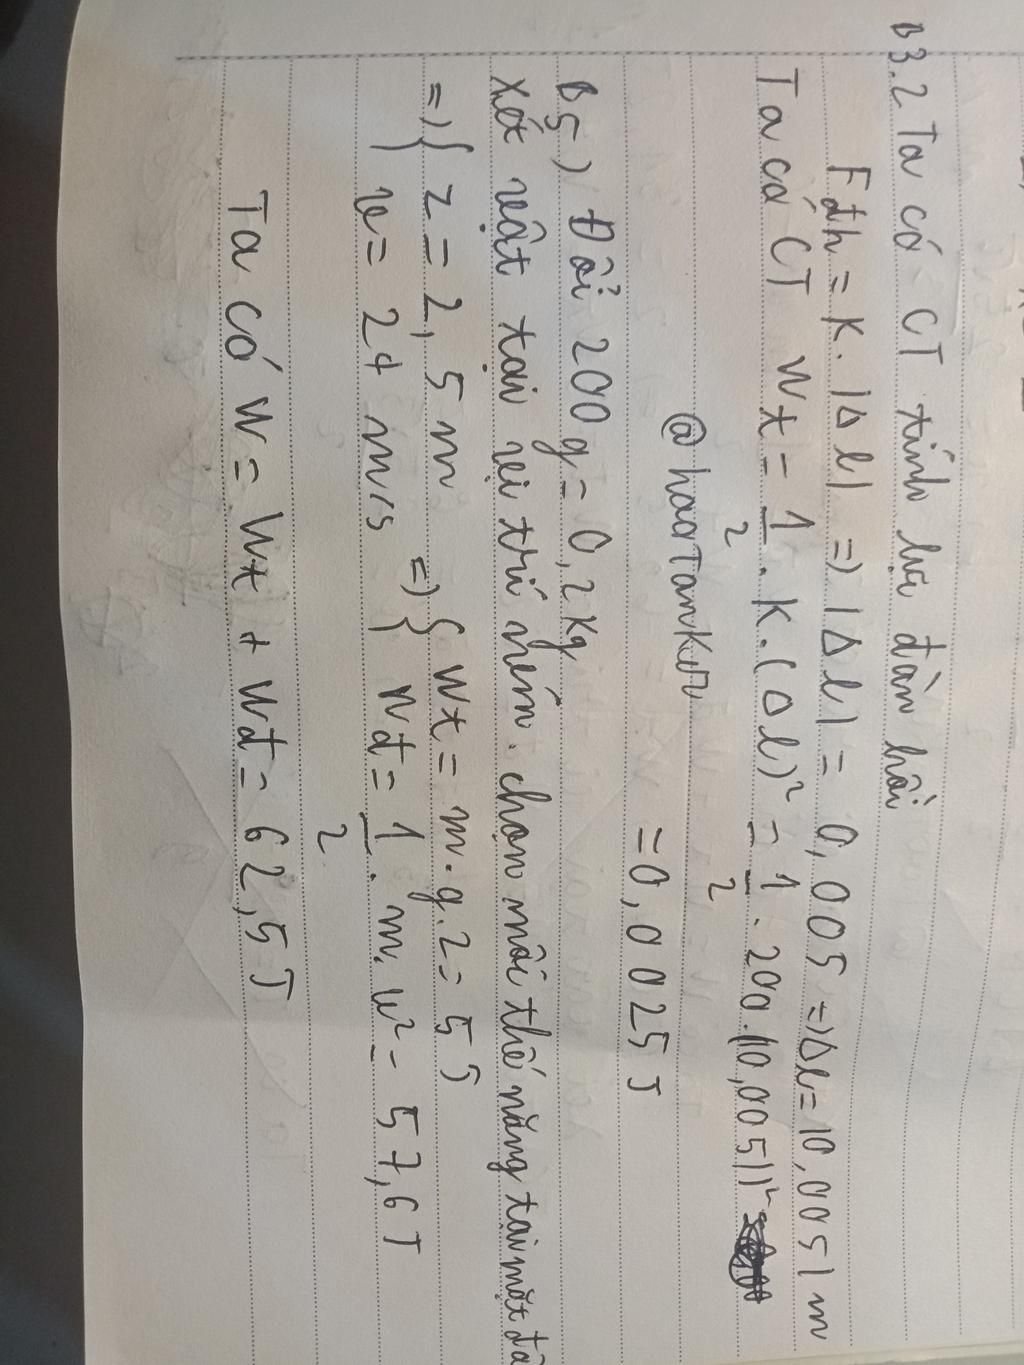 B3.2 Ta có CT tính lực đàn hồi
Fđh = K. |Δl| => |Δl| = 0,005 => Δl = |0,005| m
Ta có CT Wt = 1/2 . K. (Δl)² = 1/2 . 200. (|0,005|)²
= 0,0025 J
@haoTanker
B5) Đổi 200g = 0,2 Kg
Xét vật tại vị trí ném. chọn mốc thế năng tại mặt đấ
=> { z = 2,5 m => { Wt = m.g.z = 5 J
v = 24 m/s Wđ = 1/2 . m. v² = 57,6 J
Ta có W = Wt + Wđ = 62,5 J